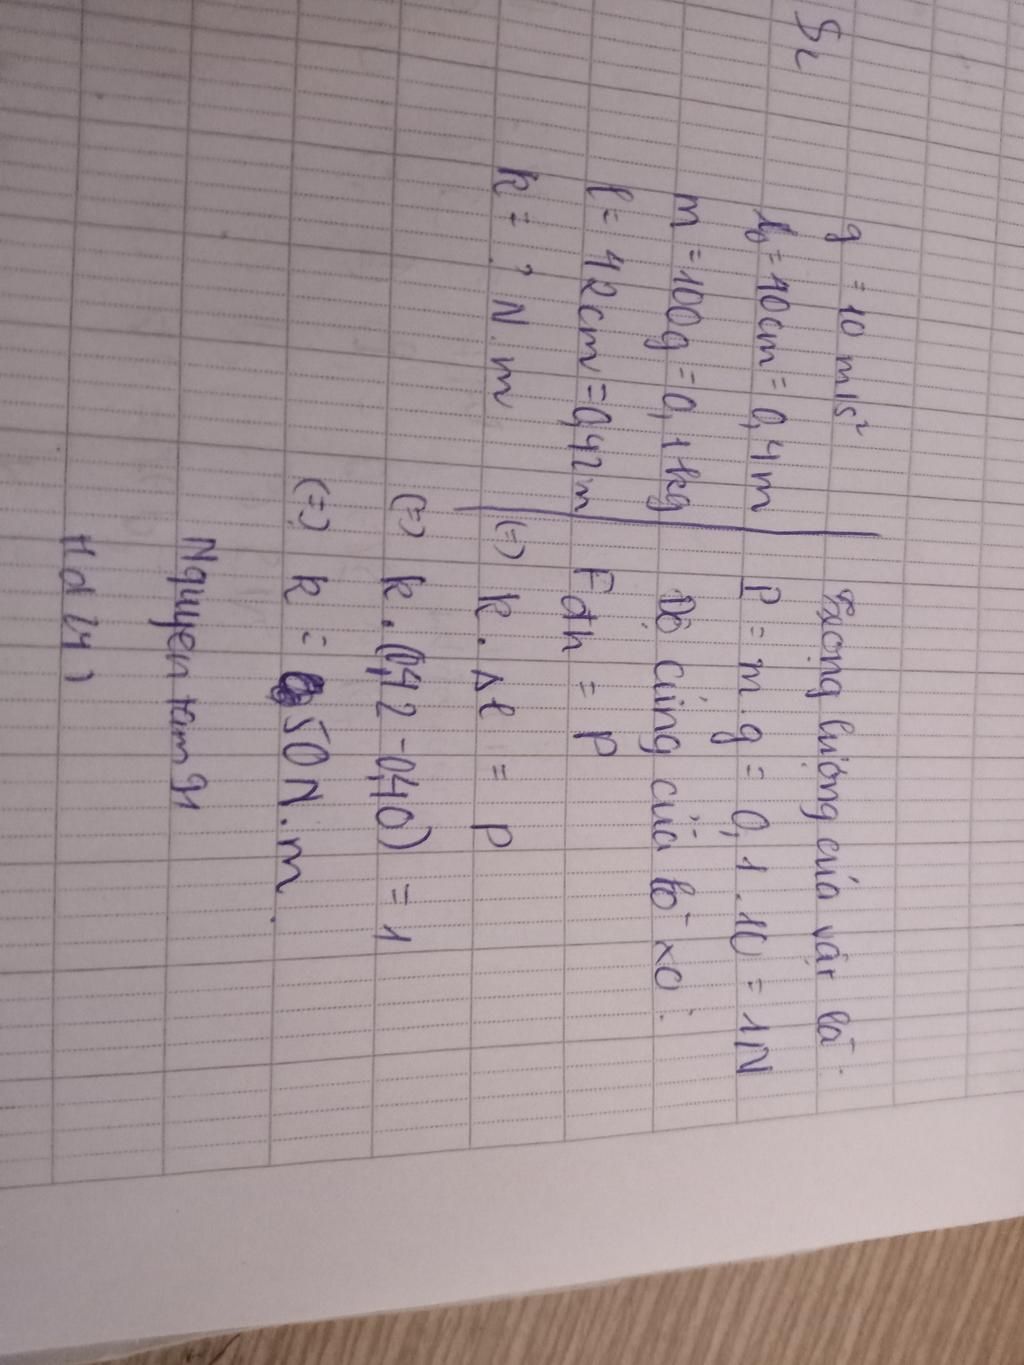 g = 10 m/s²
l₀ = 40cm = 0,4m
m = 100g = 0,1kg
l = 42cm = 0,42m
k = ? N.m
Trọng lượng của vật là:
P = m.g = 0,1.10 = 1N
Độ cứng của lò xo:
Fđh = P
(=) k.Δl = P
(=) k.(0,42 - 0,40) = 1
(=) k = 50N.m
Nguyen tam